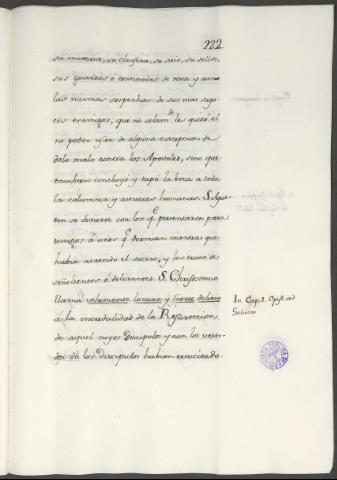 222
su materia, su clausura, su sitio, su sello,
sus guardas ó centinelas de vista y aun
las mismas sospechas de sus mas saga-
ces enemigos, que no solam.te les quitó el
no poder usar de alguna excepcion de
dolo malo contra los Apostoles, sino que
tambien concluyó y tapó la boca a toda
la calumnia y astucias humanas. S. Agus-
tin se divierte con los q.e presentaron para
testigos á unos q.e dormian mientras que
habia acaecido el suceso, y los trata de
soñolientos ó delirantes. S. Chrisostomo
llama vehemente locura y fuerte delirio
á la incredulidad de la Resurreccion
de aquel cuyos Discipulos y aun los vesti-
dos de los Discipulos habian resucitado
In Cap. 1. Epist. ad
Galatas